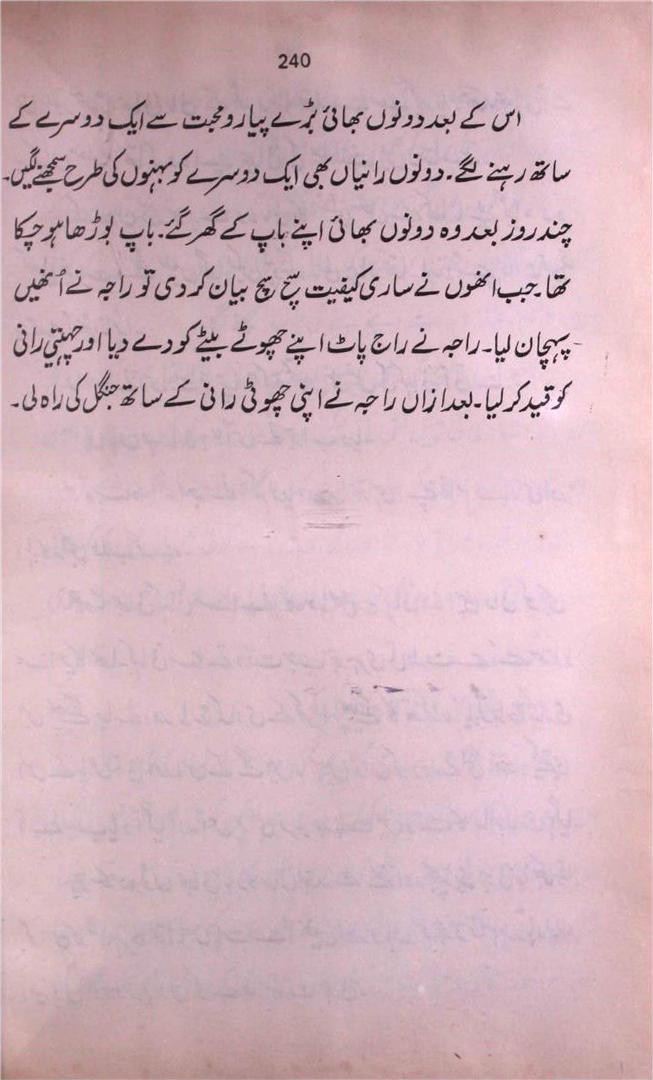 240
اس کے بعد دونوں بھائی بڑے پیار و محبت سے ایک دوسرے کے
ساتھ رہنے لگے۔ دونوں رانیاں بھی ایک دوسرے کو بہنوں کی طرح سمجھنے لگیں۔
چند روز بعد وہ دونوں بھائی اپنے باپ کے گھر گئے۔ باپ بوڑھا ہو چکا
تھا۔ جب انھوں نے ساری کیفیت سچ سچ بیان کر دی تو راجہ نے اُنھیں
پہچان لیا۔ راجہ نے راج پاٹ اپنے چھوٹے بیٹے کو دے دیا اور چہیتی رانی
کو قید کر لیا۔ بعد ازاں راجہ نے اپنی چھوٹی رانی کے ساتھ جنگل کی راہ لی۔